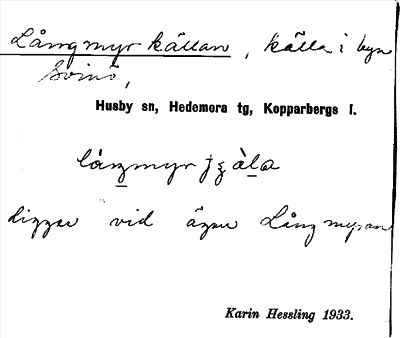 Långmyrkällan, källa i byn
Svinö,
Husby sn, Hedemora tg, Kopparbergs l.
ligger vid ägan Långmyran
Karin Hessling 1933.